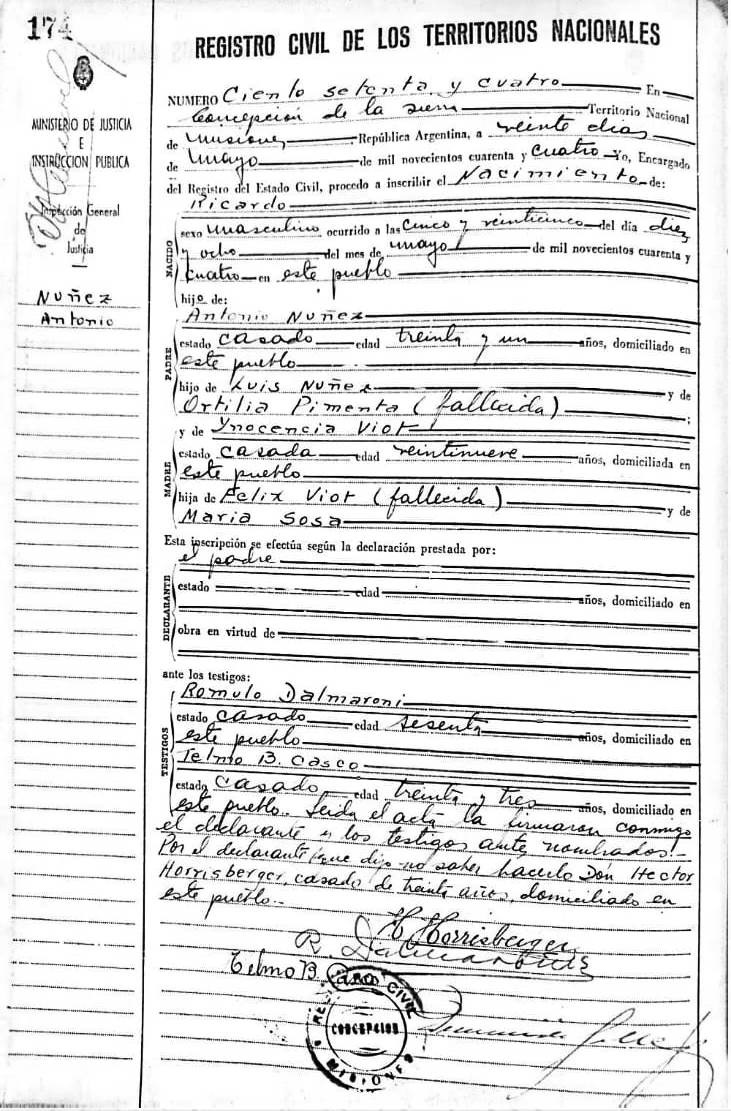 174
REGISTRO CIVIL DE LOS TERRITORIOS NACIONALES
MINISTERIO DE JUSTICIA
E
INSTRUCCION PUBLICA
Inspección General
de
Justicia
Nuñez
Antonio
NUMERO Ciento setenta y cuatro En
Concepción de la Sierra Territorio Nacional
de Misiones República Argentina, a veinte dias
de Mayo de mil novecientos cuarenta y Cuatro Yo, Encargado
del Registro del Estado Civil, procedo a inscribir el Nacimiento de:
NACIDO
Ricardo
sexo Masculino ocurrido a las Cinco y veinticinco del día diez
y ocho del mes de mayo de mil novecientos cuarenta y
Cuatro en este pueblo
hijo de:
PADRE
Antonio Nuñez
estado Casado edad treinta y un años, domiciliado en
este pueblo
hijo de Luis Nuñez y de
Ortilia Pimenta (fallecida) ;
MADRE
y de Ynocencia Viot
estado Casada edad veintinueve años, domiciliada en
este pueblo
hija de Felix Viot (fallecida) y de
Maria Sosa
Esta inscripción se efectúa según la declaración prestada por:
el padre
DECLARANTE
estado edad años, domiciliado en
obra en virtud de
ante los testigos:
TESTIGOS
Romulo Dalmaroni
estado Casado edad sesenta años, domiciliado en
este pueblo
Telmo B. Casco
estado Casado edad treinta y tres años, domiciliado en
este pueblo. Leida el acta la firmaron conmigo
el declarante y los testigos ante nombrados.-
Por el declarante que dijo no saber hacerlo Don Hector
Horrisberger, casado de treinta años, domiciliado en
este pueblo.-
H. Horrisberger
R. Dalmaroni
Telmo B. Casco
REGISTRO CIVIL
CONCEPCION
MISIONES